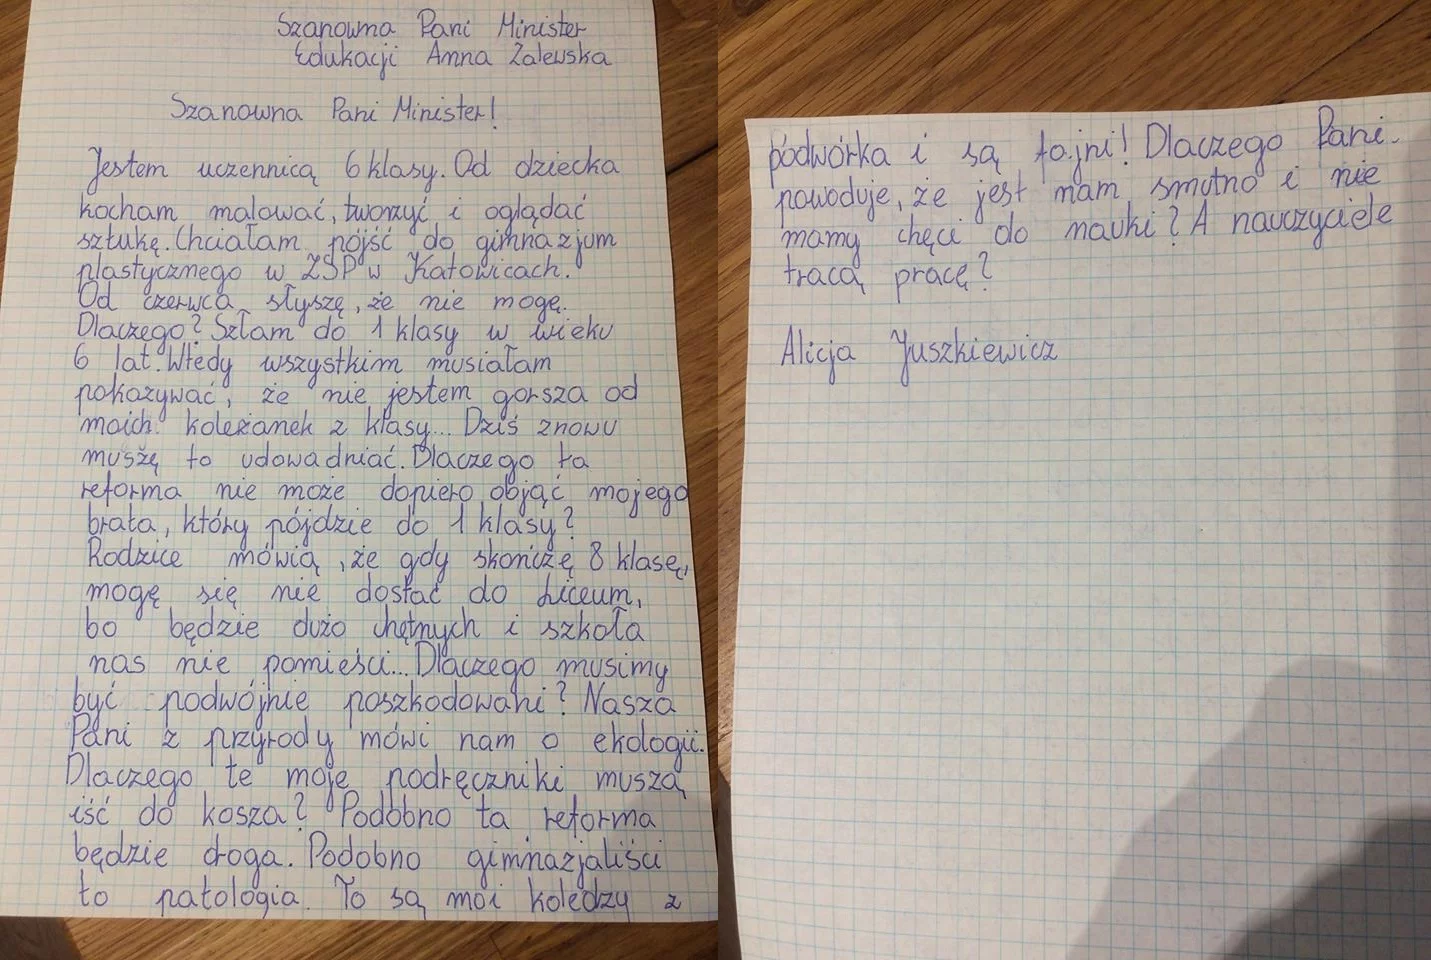 Szanowna Pani Minister
Edukacji Anna Zalewska
Szanowna Pani Minister!
Jestem uczennicą 6 klasy. Od dziecka
kocham malować, tworzyć i oglądać
sztukę. Chciałam pójść do gimnazjum
plastycznego w ZSP w Katowicach.
Od czerwca słyszę, że nie mogę.
Dlaczego? Szłam do 1 klasy w wieku
6 lat. Wtedy wszystkim musiałam
pokazywać, że nie jestem gorsza od
moich koleżanek z klasy... Dziś znowu
muszę to udowadniać. Dlaczego ta
reforma nie może dopiero objąć mojego
brata, który pójdzie do 1 klasy?
Rodzice mówią, że gdy skończę 8 klasę,
mogę się nie dostać do Liceum,
bo będzie dużo chętnych i szkoła
nas nie pomieści... Dlaczego musimy
być podwójnie poszkodowani? Nasza
Pani z przyrody mówi nam o ekologii.
Dlaczego te moje podręczniki muszą
iść do kosza? Podobno ta reforma
będzie droga. Podobno gimnazjaliści
to patologia. To są moi koledzy z
podwórka i są fajni! Dlaczego Pani
powoduje, że jest nam smutno i nie
mamy chęci do nauki? A nauczyciele
tracą pracę?
Alicja Juszkiewicz